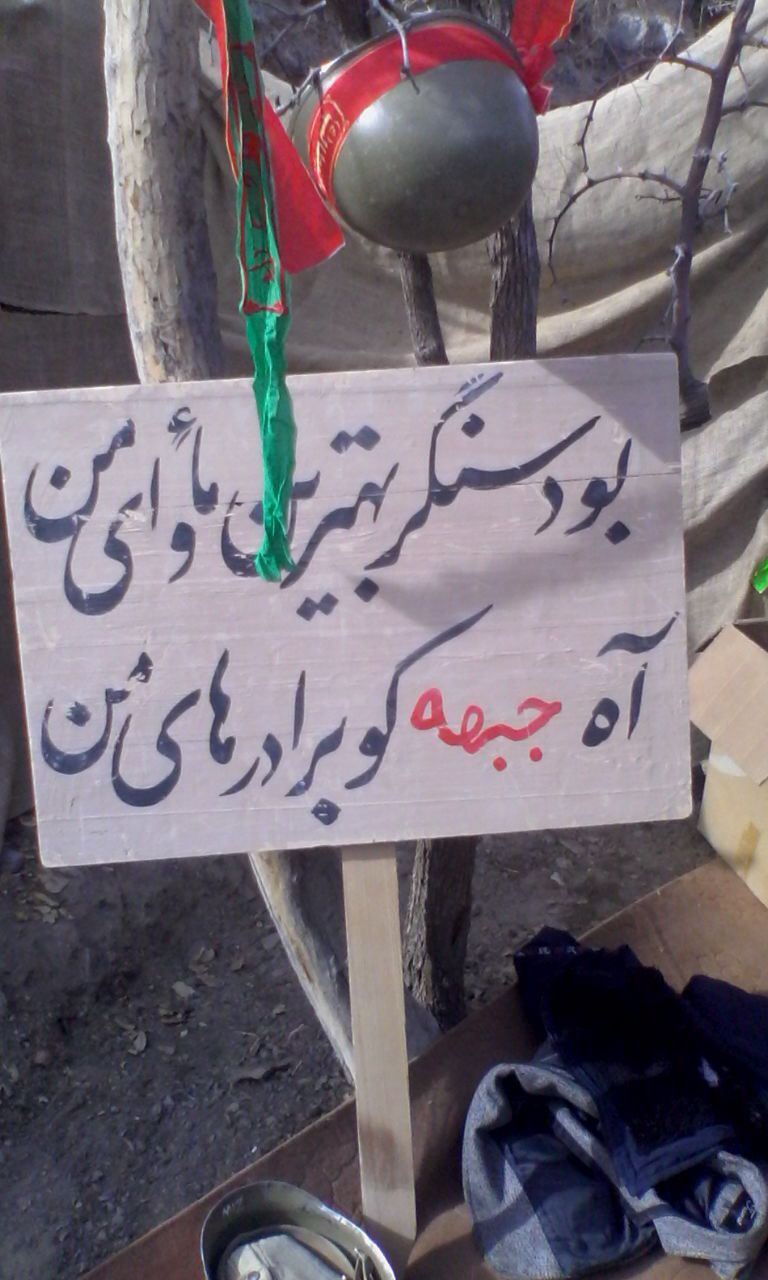 بود سنگر بهترین مأوای من
آه جبهه کو برادرهای من